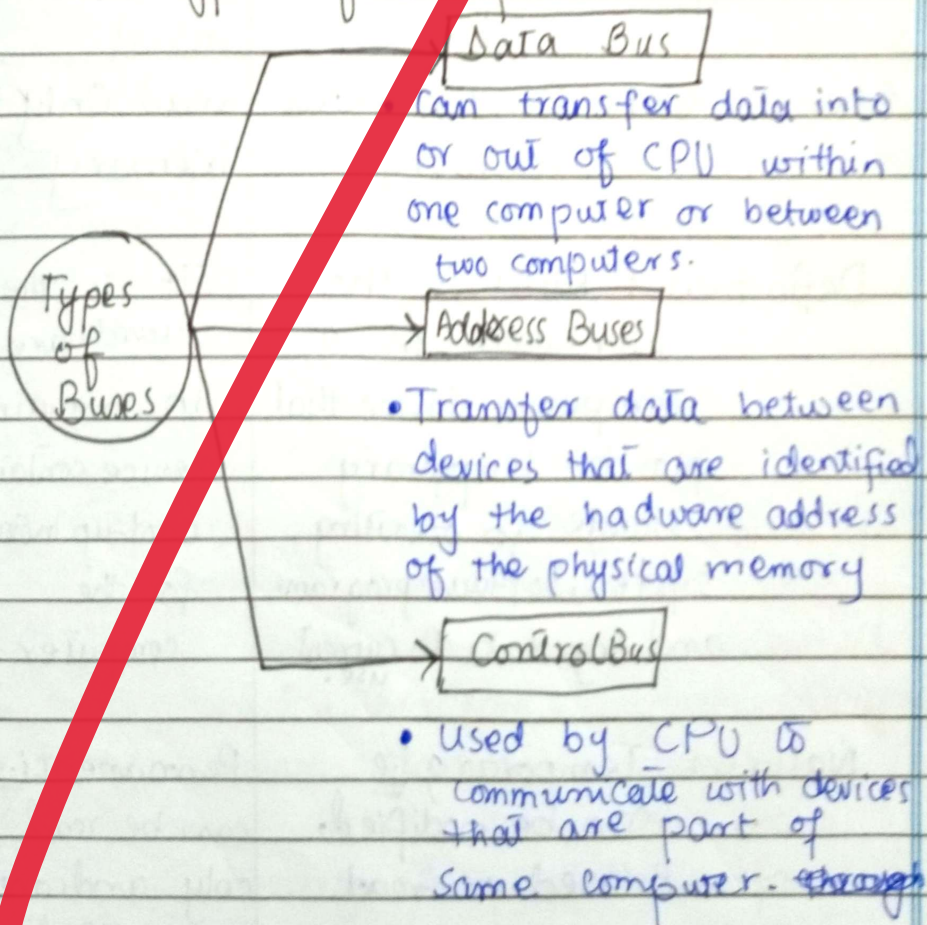 Data Bus
• Can transfer data into
or out of CPU within
one computer or between
two computers.
Types
of
Buses
Address Buses
• Transfer data between
devices that are identified
by the hadware address
of the physical memory
Control Bus
• Used by CPU to
communicate with devices
that are part of
same computer. through